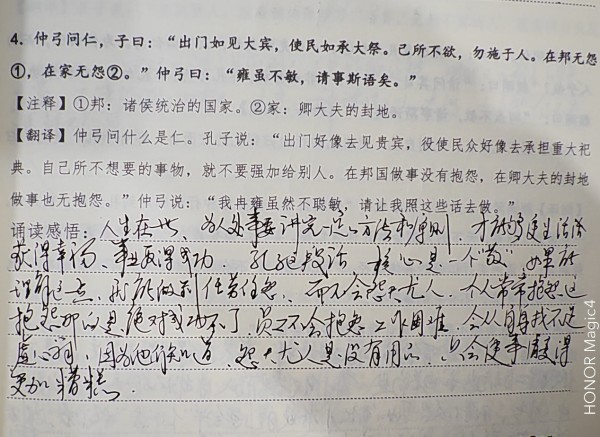 4. 仲弓问仁，子曰：“出门如见大宾，使民如承大祭。己所不欲，勿施于人。在邦无怨
①，在家无怨②。”仲弓曰：“雍虽不敏，请事斯语矣。”
【注释】①邦：诸侯统治的国家。②家：卿大夫的封地。
【翻译】仲弓问什么是仁。孔子说：“出门好像去见贵宾，役使民众好像去承担重大祀
典。自己所不想要的事物，就不要强加给别人。在邦国做事没有抱怨，在卿大夫的封地
做事也无抱怨。”仲弓说：“我冉雍虽然不聪敏，请让我照这些话去做。”
诵读感悟：人生在世，为人处事要讲究一定的方法和原则，才能够使生活
获得幸福、事业取得成功。孔子这段话，核心是一个“敬”，如果能
理解这一点，就能做到任劳任怨，而不会怨天尤人。个人常常抱怨这
抱怨那的是绝对成功不了，员工不会抱怨工作困难，会从自身找不足
处，因为他们知道，怨天尤人是没有用的，只会使事情变得
更加糟糕。
HONOR Magic4